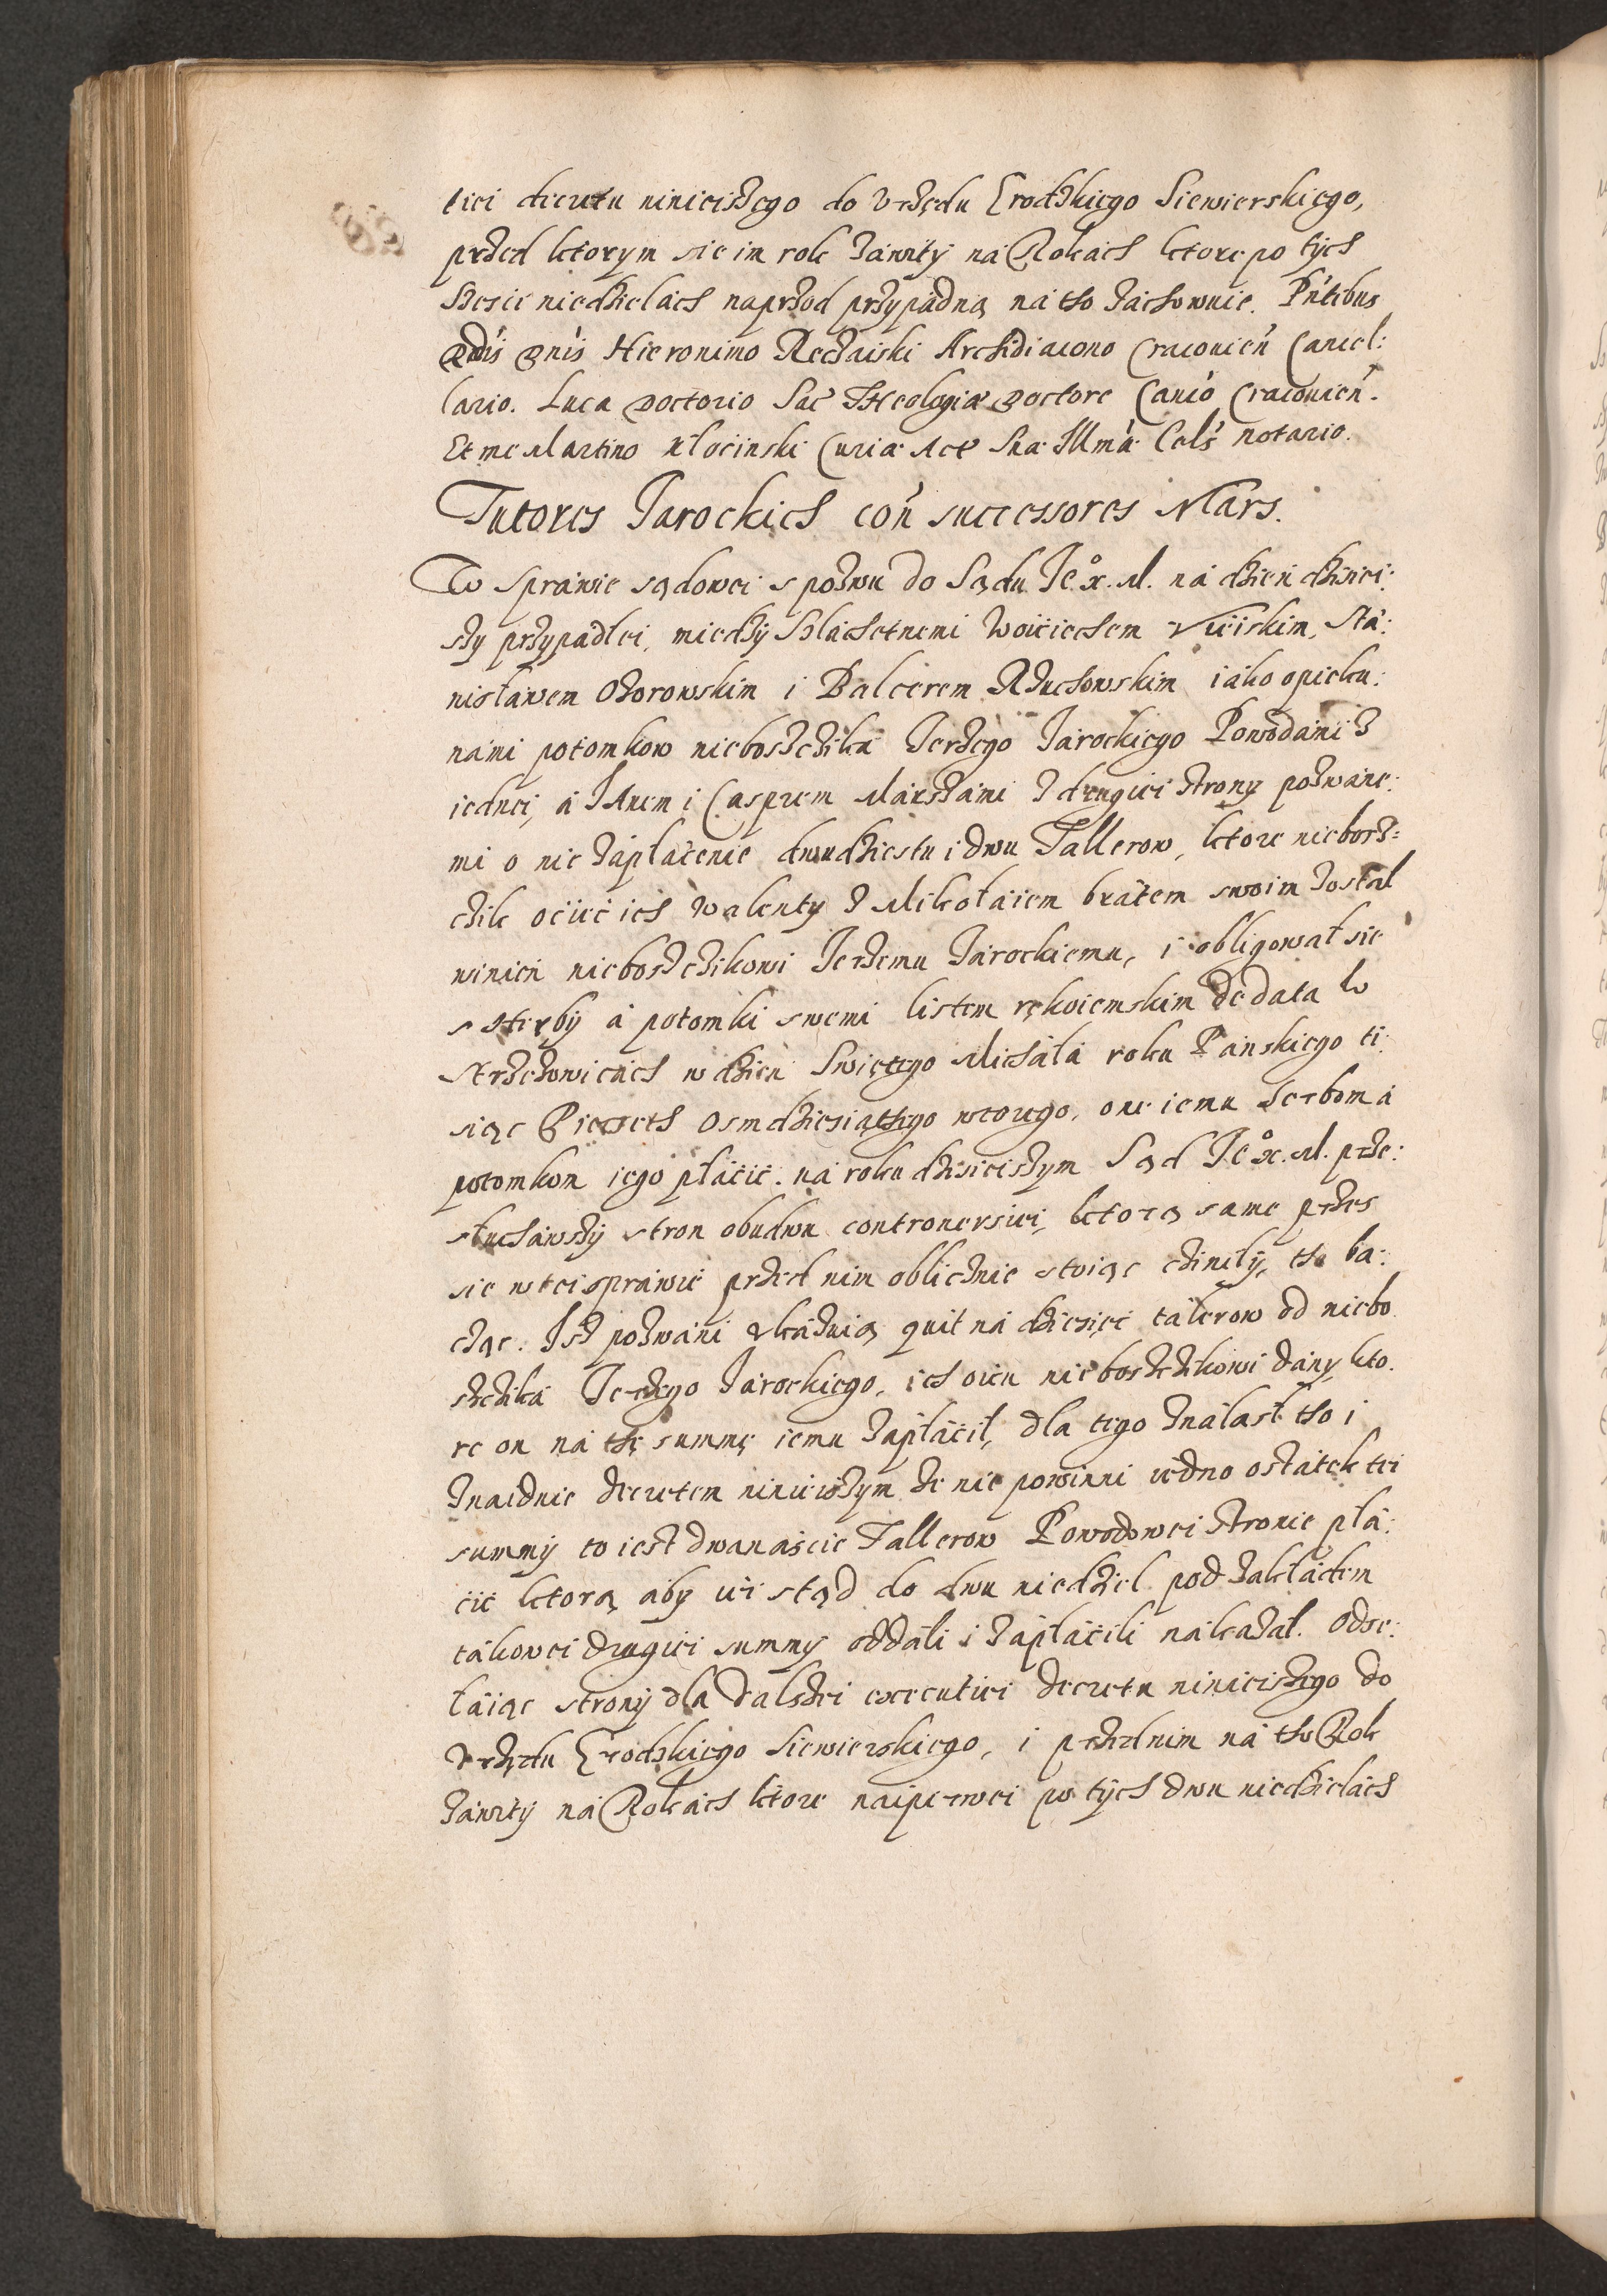 tiei decretu ninieiszego do Vrzędu Grodzkiego Siewierskiego,
przed ktorym sie im rok zawity na Rokach ktore po tych
Szesci niedzielach naprzod przypadną na tho zachowuie. Pntibus
Rdis Dnis Hieronimo Reczaiski Archidiacono Cracouien Cancel:
lario. Luca Doctorio Sac Theologiæ Doctore Canco Cracouien.
Et me Martino Kłocinski Curiæ Act Suæ Illmæ Cels notario.
Tutores Jarockich con successores Mars.
W sprawie sądowei s pozwu do Sądu Je° x. M. na dzien dzisiei:
szy przypadłei, miedzy Szlachetnemi Woiciechem Vieiskim, Sta:
nisławem Ozorowskim i Balcerem Rzuchowskim iako opieku:
nami potomkow nieboszczika Jerzego Jarockiego Powodami z
iednei, a Janem i Casprem Marszami z drugiei strony pozwane:
mi o nie zapłacenie dwudziestu i dwu Tallerow, ktore niebosz:
czik ociec ich Walenty z Mikołaiem bratem swoim został
winien nieboszczikowi Jerzemu Jarockiemu, i obligował sie
s Herby a potomki swemi listem rękoiemskim de data w
Strzezowicach w dzien Swiętego Michała roku Panskiego ti:
siąc Piecseth Osmdziesiąthego wtorego, one iemu Serbom a
potomkom iego płacic. na roku dzisieiszym Sąd Je° x. M. prze:
słuchawszy stron obudwu controuersiei, ktorą same przes
sie w tei sprawie przed nim oblicznie stoiąc cziniły, tho ba:
cząc. Isz pozwani vkazuią quit na dziesięc talerow od niebo
szczika Jerzego Jarockiego, ich oicu nieboszczikowi dany, kto:
re on na thę summę iemu zapłacił, dla tego znalasł tho i
znaiduie decretem ninieiszym że nie powinni iedno ostatek tei
summy to iest dwanascie Tallerow Powodowei stronie pła:
cic ktorą aby iei stąd do dwu niedziel pod zakładem
takowei drugiei summy oddali i zapłacili nakazał. Odse:
łaiąc strony dla dalszei executiei decretu ninieiszego do
Vrzędu Grodskiego Siewierskiego, i przed nim na tho Rok
zawity na Rokach ktore naiperwei po tych dwu niedzielach